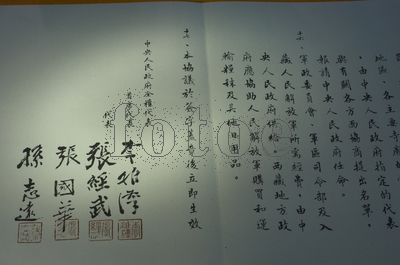 地區、各主要寺廟的
由中央人民政府指定的代表
與有關各方面協商提出名單，
報請中央人民政府任命。
十六、軍政委員會、軍區司令部及入
藏人民解放軍所需經費，由中
央人民政府供給。西藏地方政
府應協助人民解放軍購買和運
輸糧秣及其他日用品。
十七、本協議於簽字蓋章後立即生效
中央人民政府全權代表
首席代表
李維漢
代表
張經武
張國華
孫志遠
fotoe